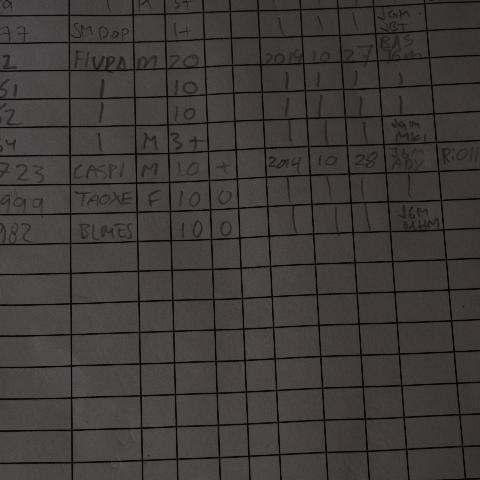 M 3+ | | | JGM
77 SMDOP 1+ | | | JBT
2 FIVPA M 20 2014 10 27 BAS JGM
51 | 10 | | | |
52 | 10 | | | |
54 | M 3+ | | | JGM
723 CASPI M 10 + 2014 10 28 JGM ADV
999 TAOXE F 10 0 | | | |
982 BLMES 10 0 | | | JGM MHM